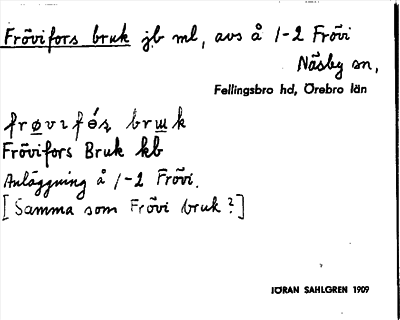 Frövifors bruk jb ml, avs å 1-2 Frövi
Näsby sn,
Fellingsbro hd, Örebro län
Frövifors Bruk kb
Anläggning å 1-2 Frövi.
[Samma som Frövi bruk?]
JÖRAN SAHLGREN 1909